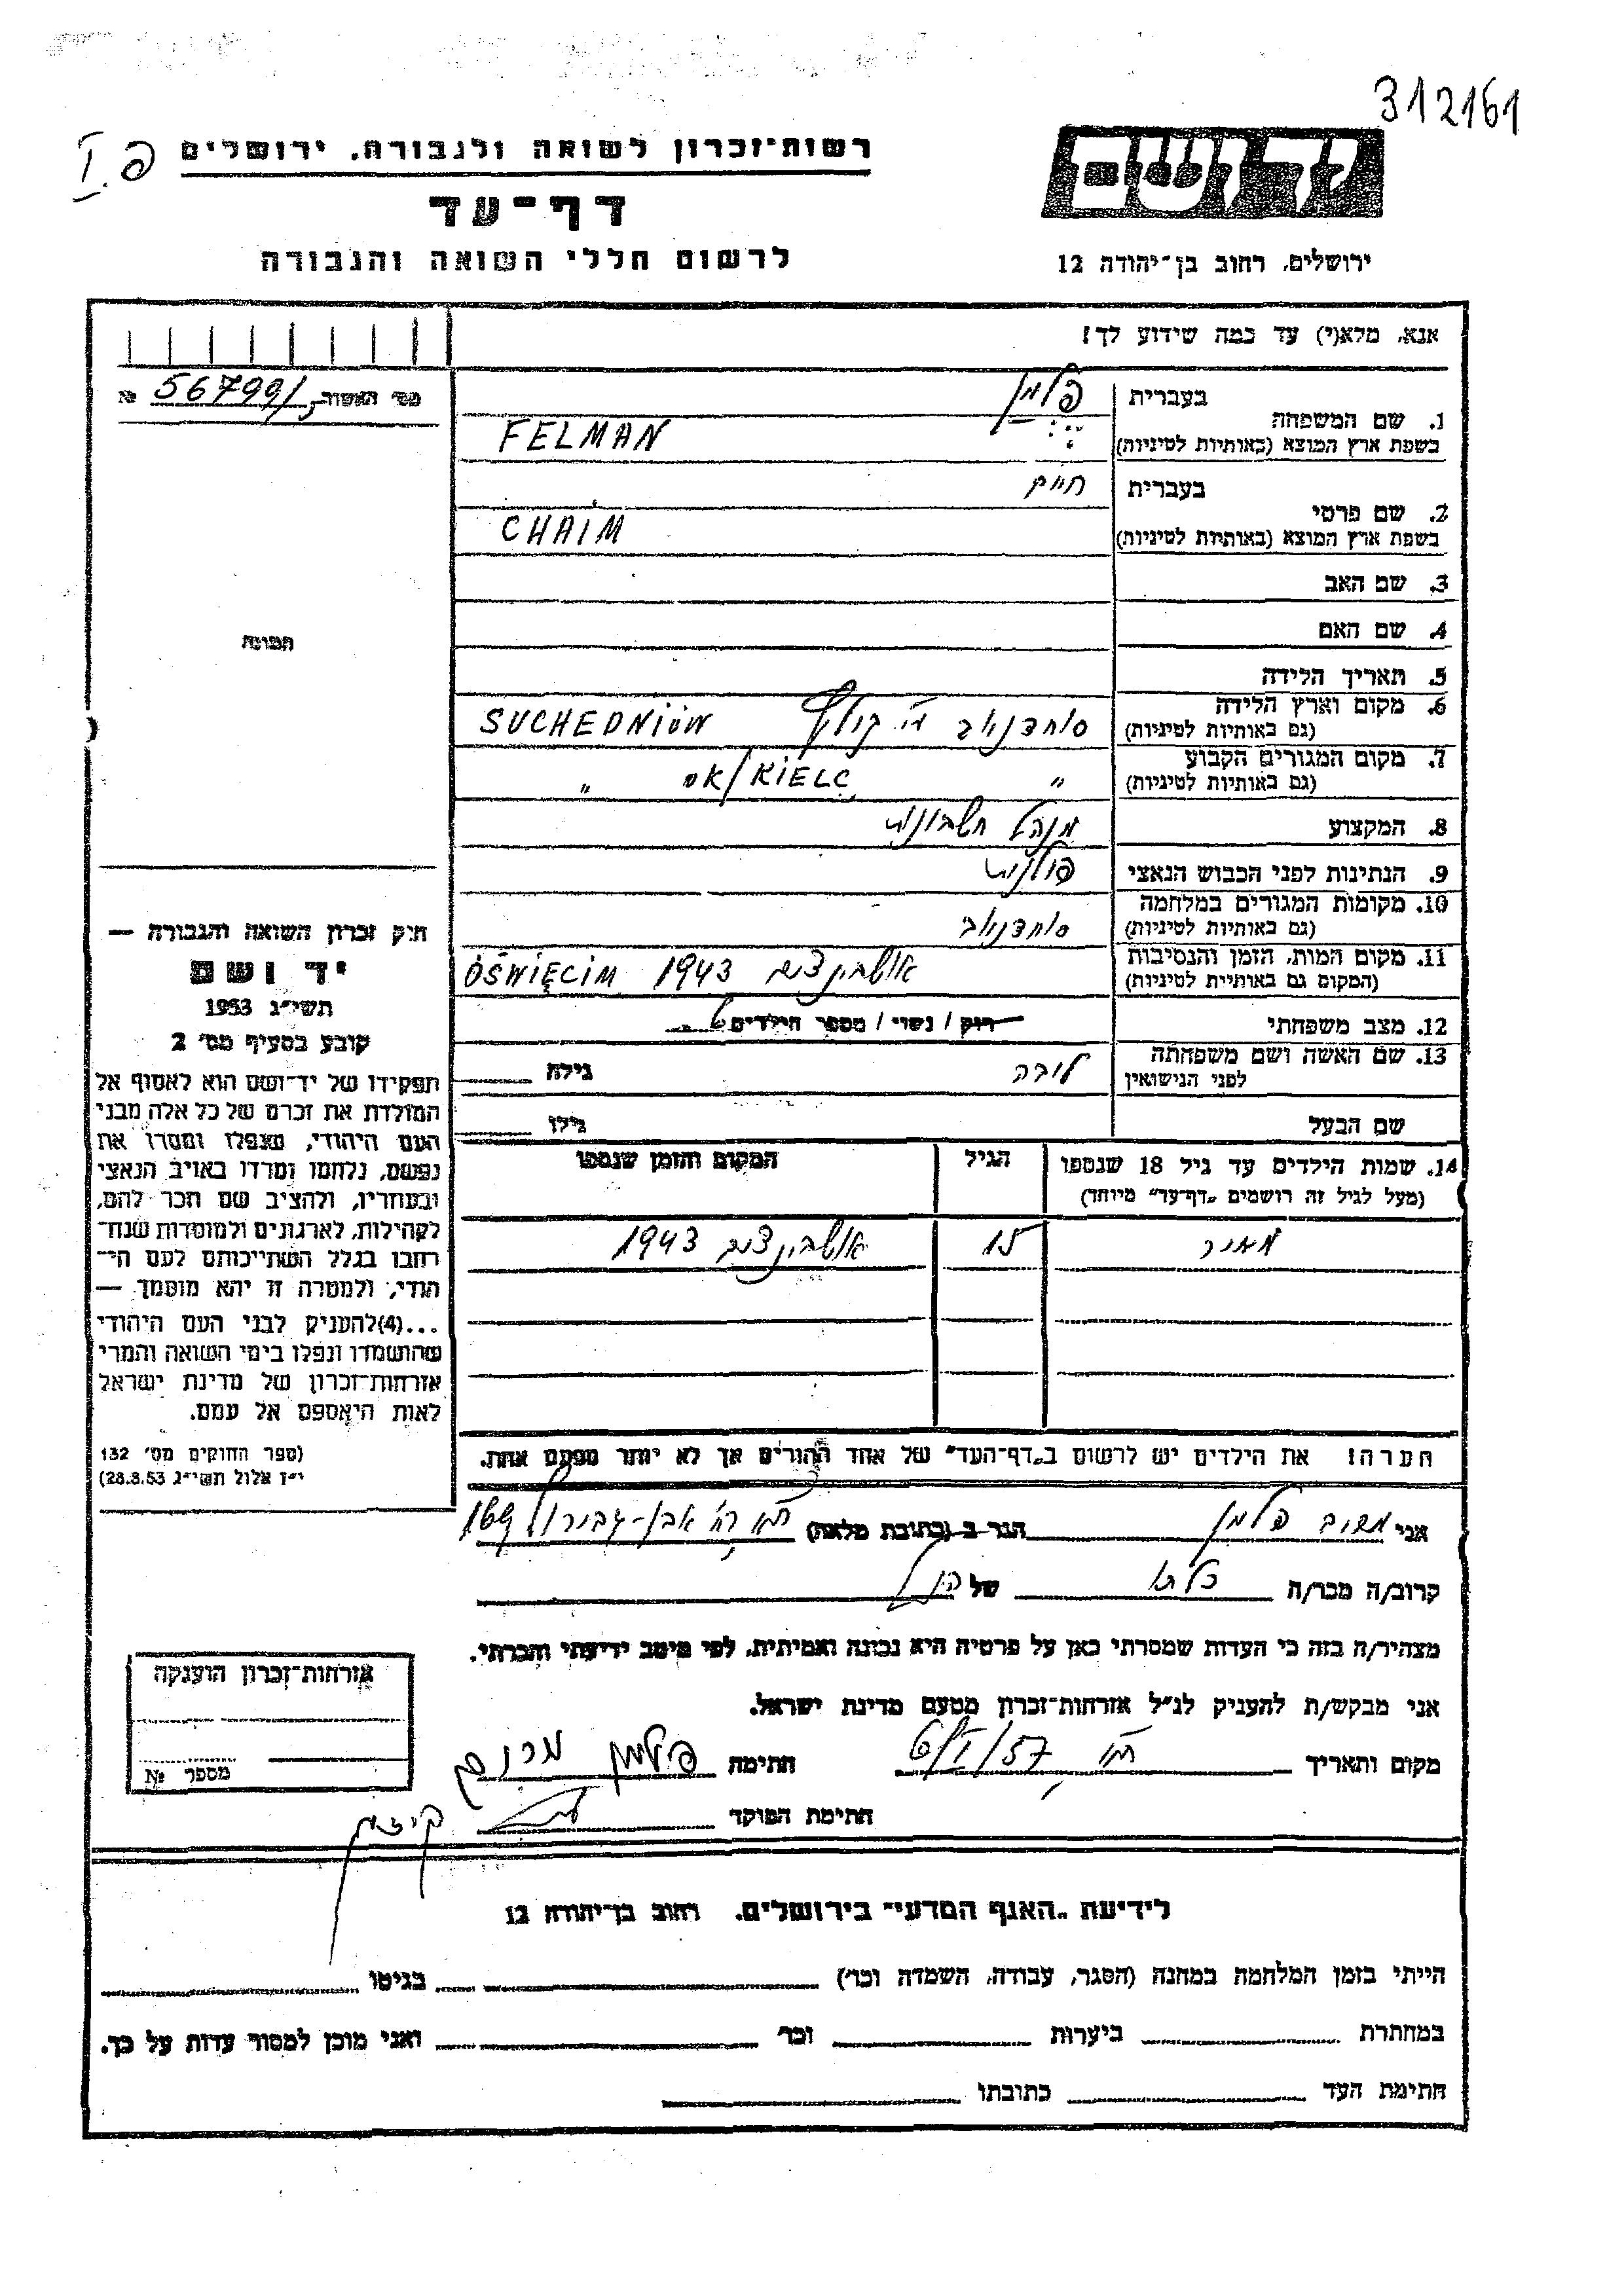 312161
פ. I
רשות־זכרון לשואה ולגבורה. ירושלים
דף־עד
לרשום חללי השואה והגבורה
ירושלים, רחוב בן־יהודה 12
אנא, מלא(י) עד כמה שידוע לך!
מס' האשור 56799/ №
בעברית פלמן
1. שם המשפחה
בשפת ארץ המוצא (באותיות לטיניות) FELMAN
בעברית חיים
2. שם פרטי
בשפת ארץ המוצא (באותיות לטיניות) CHAIM
3. שם האב
4. שם האם
תמונה
5. תאריך הלידה
6. מקום וארץ הלידה
(גם באותיות לטיניות) סוחדניוב SUCHEDNIÓW
7. מקום המגורים הקבוע
(גם באותיות לטיניות) " ok/KIELC "
8. המקצוע מנהל חשבונות
9. הנתינות לפני הכבוש הנאצי פולנית
10. מקומות המגורים במלחמה
(גם באותיות לטיניות) סוחדניוב
11. מקום המות, הזמן והנסיבות
(המקום גם באותיות לטיניות) אושבינצים 1943 OŚWIĘCIM
12. מצב משפחתי רוק / נשוי / מספר הילדים
13. שם האשה ושם משפחתה
לפני הנישואין לובה גילה
שם הבעל גילו
14. שמות הילדים עד גיל 18 שנספו הגיל המקום והזמן שנספו
(מעל לגיל זה רושמים „דף־עד” מיוחד)
מאיר 15 אושבינצים 1943
הערה! את הילדים יש לרשום ב„דף־העד” של אחד ההורים אך לא יותר מפעם אחת.
חוק זכרון השואה והגבורה —
יד ושם
תשי״ג 1953
קובע בסעיף מס' 2
תפקידו של יד־ושם הוא לאסוף אל
המולדת את זכרם של כל אלה מבני
העם היהודי, שנפלו ומסרו את
נפשם, נלחמו ומרדו באויב הנאצי
ובעוזריו, ולהציב שם וזכר להם,
לקהילות, לארגונים ולמוסדות שנח־
רבו בגלל השתייכותם לעם הי־
הודי, ולמטרה זו יהא מוסמך —
...(4)להעניק לבני העם היהודי
שהושמדו ונפלו בימי השואה והמרי
אזרחות־זכרון של מדינת ישראל
לאות היאספם אל עמם.
(ספר החוקים מס' 132
י״ז אלול תשי״ג 28.8.53)
אני פלמן הגר ב (כתובת מלאה) ת״א רח' אבן־גבירול 166
קרוב/ה מכר/ה כלתו של הנ״ל
מצהיר/ה בזה כי העדות שמסרתי כאן על פרטיה היא נכונה ואמיתית, לפי מיטב ידיעתי והכרתי.
אני מבקש/ת להעניק לנ״ל אזרחות־זכרון מטעם מדינת ישראל.
מקום ותאריך ת״א חתימה פלמן
חתימת הפוקד
אזרחות־זכרון הוענקה
מספר №
לידיעת „האגף המדעי” בירושלים. רחוב בן־יהודה 12
הייתי בזמן המלחמה במחנה (הסגר, עבודה, השמדה וכו') בגיטו
במחתרת ביערות וכו' ואני מוכן למסור עדות על כך.
חתימת העד כתובתו